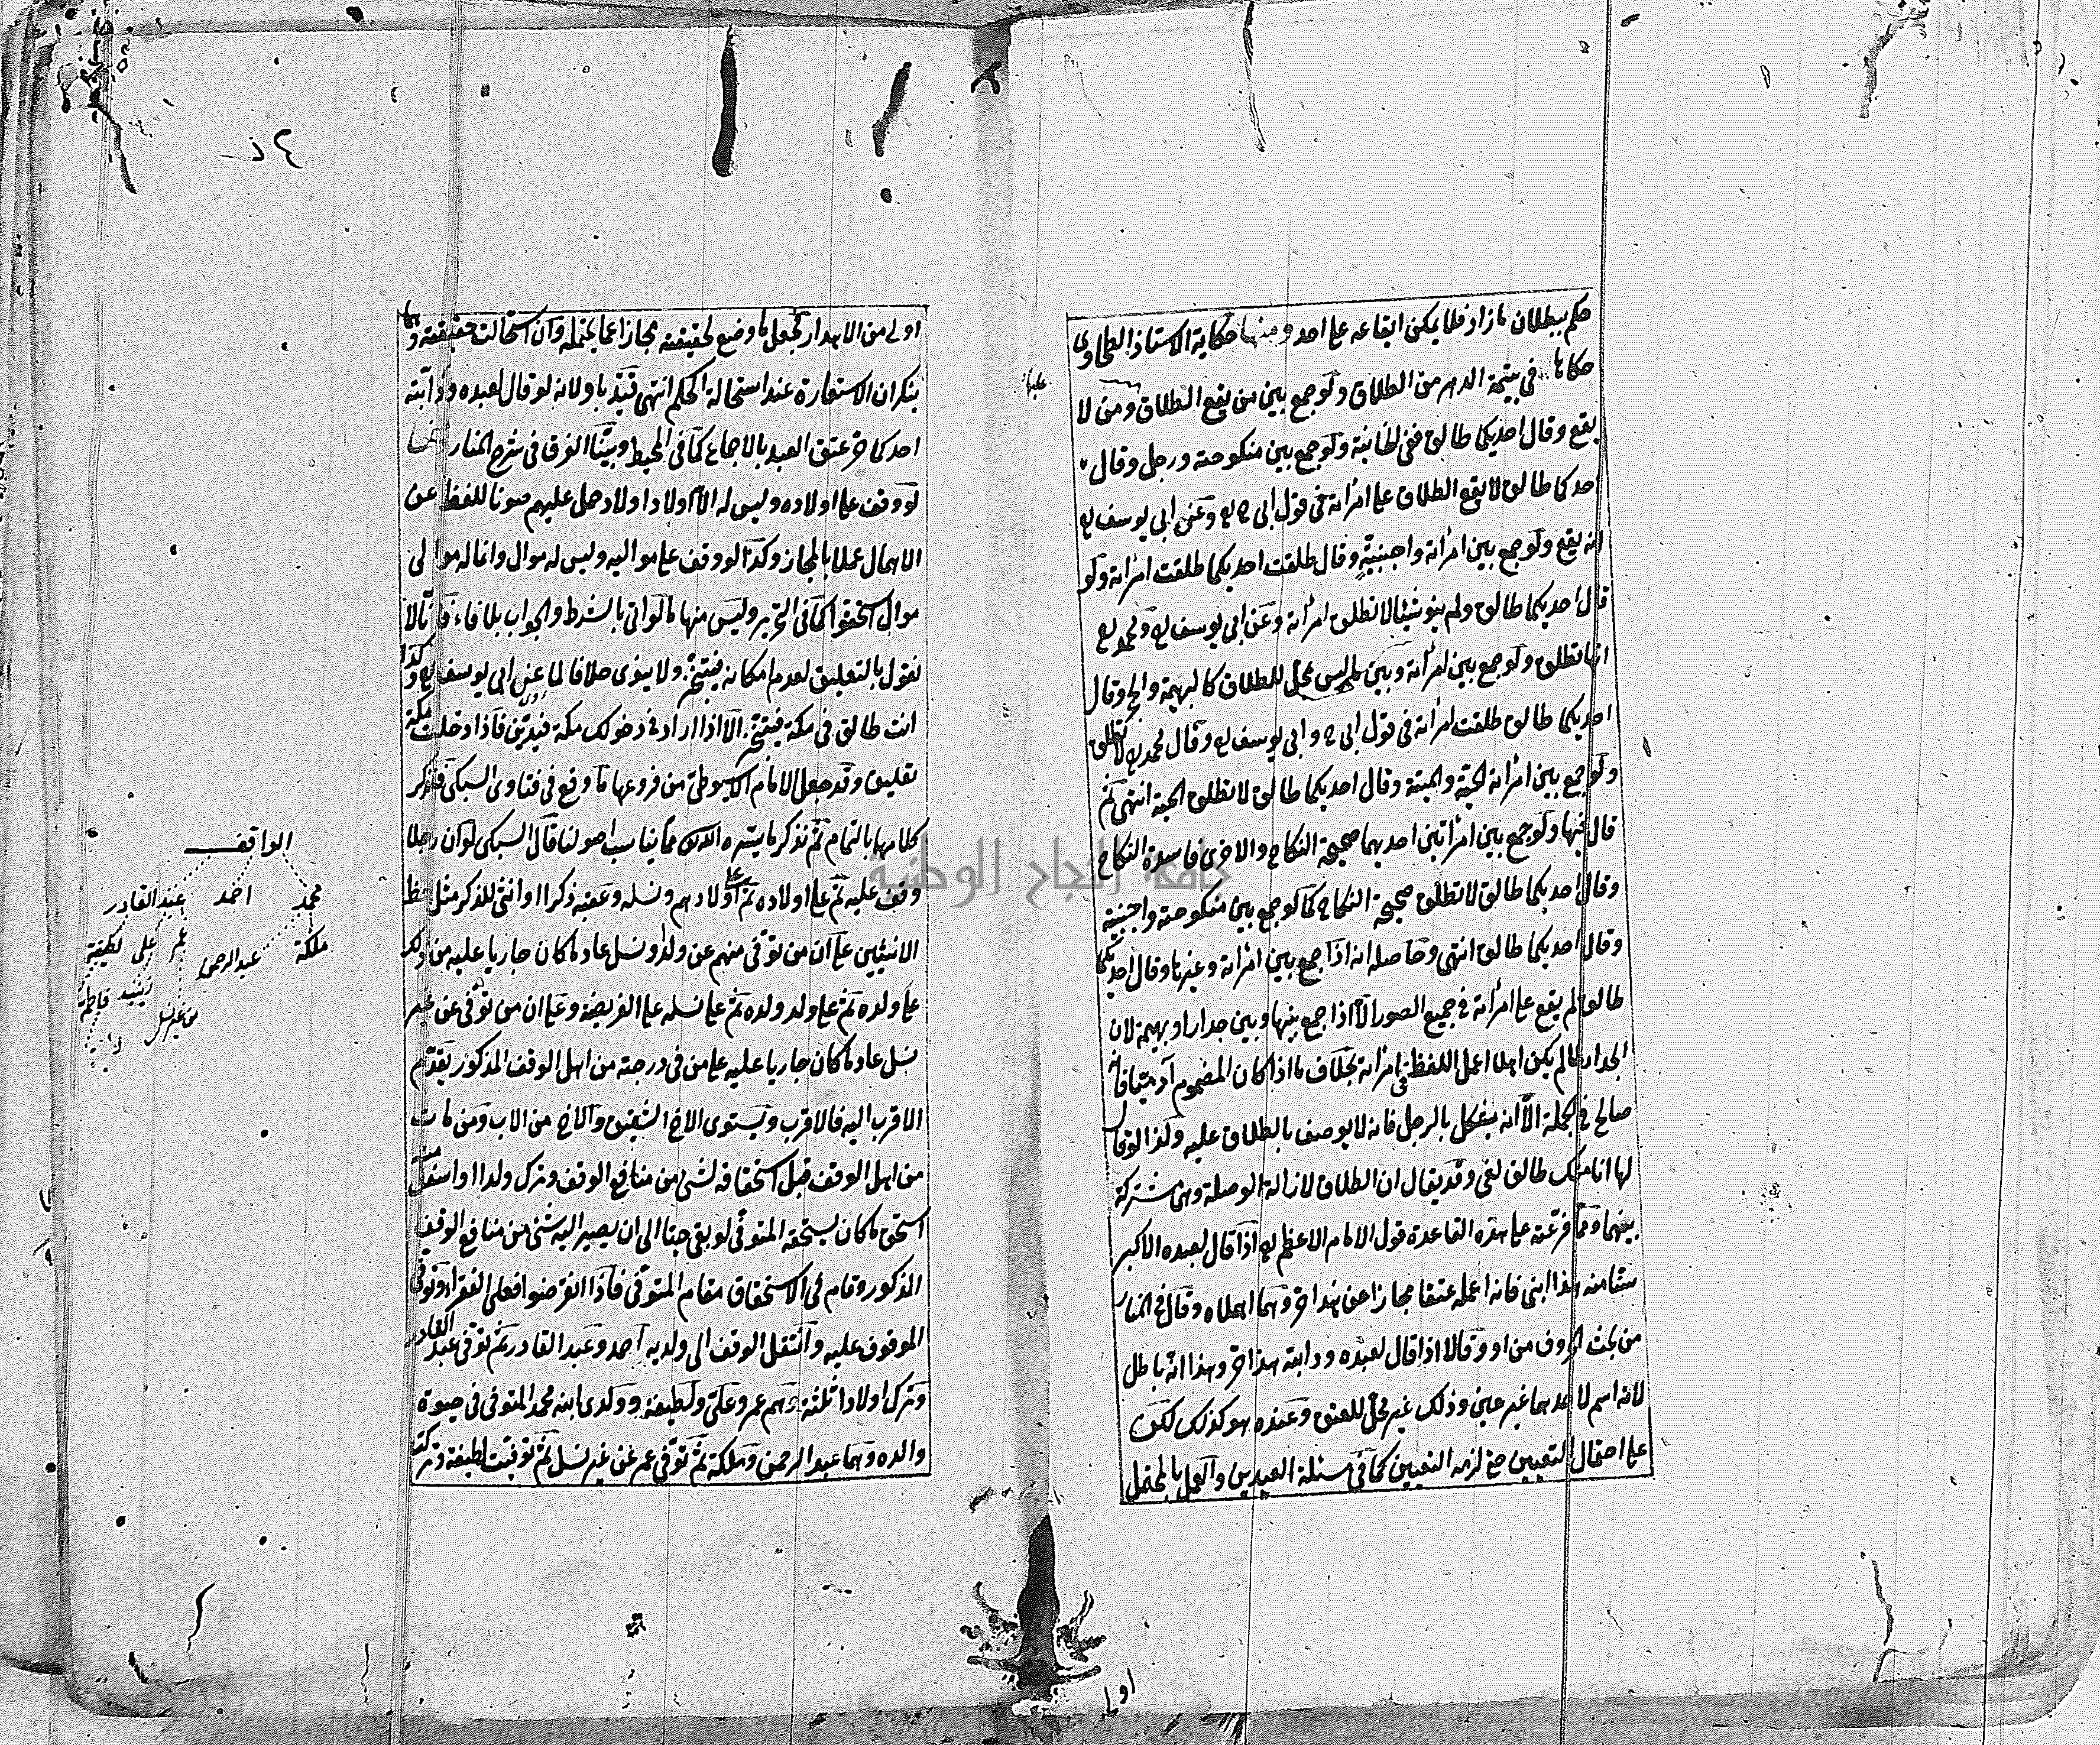 حكم ببطلان ما زاد فلا يمكن ايقاعه على احد ومنها حكاية الاستاذ الطحاوى
حكاها في يتيمة الدهر من الطلاق ولو جمع بين من يقع الطلاق ومن لا
عليها
يقع وقال احديكما طالق ففى الخانية ولو جمع بين منكوحته ورجل وقال
احدكما طالق لا يقع الطلاق على امرأته في قول ابى ح رح وعن ابى يوسف رح
انه يقع ولو جمع بين امرأته واجنبية وقال طلقت احديكما طلقت امرأته ولو
قال احديكما طالق ولم ينو شيئا لا تطلق امرأته وعن ابى يوسف رح ومحمد رح
انها تطلق ولو جمع بين امرأته وبين ما ليس بمحل للطلاق كالبهيمة والحجر وقال
احديكما طالق طلقت امرأته في قول ابى ح وابى يوسف رح وقال محمد رح لا تطلق
ولو جمع بين امرأته الحية والميتة وقال احديكما طالق لا تطلق الحية انتهى ثم
قال فيها ولو جمع بين امرأتين احديهما صحيحة النكاح والاخرى فاسدة النكاح
وقال احديكما طالق لا تطلق صحيحة النكاح كما لو جمع بين منكوحته واجنبية
وقال احديكما طالق انتهى وحاصله انه اذا جمع بين امرأته وغيرها وقال احديكما
طالق لم يقع على امرأته في جميع الصور الا اذا جمع بينها وبين جدار او بهيمة لان
الجدار لما لم يكن اهلا اعمل اللفظ في امرأته بخلاف ما اذا كان المضموم آدميا فانه
صالح في الجملة الا انه يشكل بالرجل فانه لا يوصف بالطلاق عليه وكذا لو قال
لها انا منك طالق لغى وقد يقال ان الطلاق لازالة الوصلة وهى مشتركة
بينهما ومما فرعته على هذه القاعدة قول الامام الاعظم رح اذا قال لعبده الاكبر
سنا منه هذا ابنى فانه اعمله عتقا مجازا عن هذا حر وهما اهملاه وقال في المنار
من بحث الحروف من او وقالا اذا قال لعبده ودابته هذا حر وهذا انه باطل
لانه اسم لاحدهما غير عين وذلك غير محل للعتق وعنده هو كذلك لكن
على احتمال التعيين حتى لزمه التعيين كما في مسئلة العبدين والعمل بالمحتمل
اولى
٥٤
اولى من الاهدار فجعل ما وضع لحقيقته مجازا عما يحتمله وان استحالت حقيقته وهما
ينكران الاستعارة عند استحالة الحكم انتهى قيد باو لانه لو قال لعبده ودابته
احدكما حر عتق العبد بالاجماع كما في المحيط وبينا الفرق في شرح المنار ومنها
لو وقف على اولاده وليس له الا اولاد اولاد حمل عليهم صونا للفظ عن
الاهمال عملا بالمجاز وكذا لو وقف على مواليه وليس له موال وانما له موالى
موال استحقوا كما في التحرير وليس منها ما لو اتى بالشرط والجواب بلا فاء فانا لا
نقول بالتعليق لعدم امكانه فيتنجز ولا ينوى خلافا لما عن ابى يوسف رح وكذا
انت طالق في مكة فيتنجز الا اذا اراد في دخولك مكة فيدين فاذا دخلت مكة
تعليق وقد جعل الامام الاسيوطى من فروعها ما وقع في فتاوى السبكى فنذكر
كلامهما بالتمام ثم نذكر ما يسره الله مما يناسب اصولنا قال السبكى لو ان رجلا
وقف عليه ثم على اولاده ثم على اولادهم ونسله وعقبه ذكرا او انثى للذكر مثل حظ
الانثيين على ان من توفى منهم عن ولد او نسل عاد ما كان جاريا عليه من ذلك
على ولده ثم على ولد ولده ثم على نسله على الفريضة وعلى ان من توفى عن غير
نسل عاد ما كان جاريا عليه على من في درجته من اهل الوقف المذكور يقدم
الاقرب اليه فالاقرب ويستوى الاخ الشقيق والاخ من الاب ومن مات
من اهل الوقف قبل استحقاقه لشئ من منافع الوقف وترك ولدا او اسفل منه
استحق ما كان يستحقه المتوفى لو بقى حيا الى ان يصير اليه شئ من منافع الوقف
المذكور وقام في الاستحقاق مقام المتوفى فاذا انقرضوا فعلى الفقراء وتوفى
الموقوف عليه وانتقل الوقف الى ولديه احمد وعبد القادر ثم توفى عبد القادر
وترك اولادا ثلثة وهم عمر وعلى ولطيفة وولدى ابنه محمد المتوفى في حيوة
والده وهما عبد الرحمن وملكة ثم توفى عمر عن غير نسل ثم توفيت لطيفة وتركت
الواقف
محمد احمد عبد القادر
ملكة عبد الرحمن عمر على لطيفة
زينب فاطمة
من غير نسل